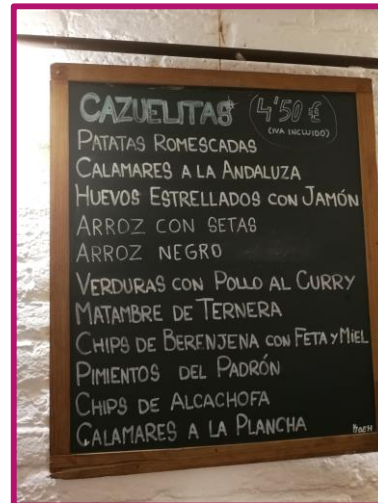 CAZUELITAS 4'50 €
(IVA INCLUIDO)
PATATAS ROMESCADAS
CALAMARES A LA ANDALUZA
HUEVOS ESTRELLADOS CON JAMÓN
ARROZ CON SETAS
ARROZ NEGRO
VERDURAS CON POLLO AL CURRY
MATAMBRE DE TERNERA
CHIPS DE BERENJENA CON FETA Y MIEL
PIMIENTOS DEL PADRÓN
CHIPS DE ALCACHOFA
CALAMARES A LA PLANCHA